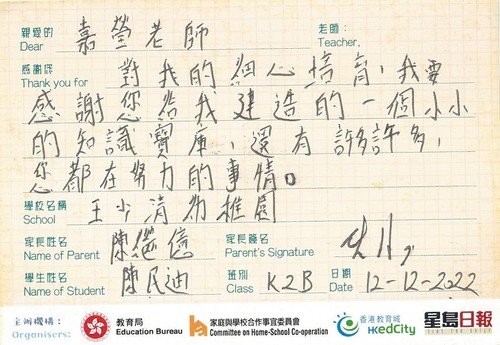 親愛的 嘉瑩老師 老師:
Dear Teacher,
感謝您 對我的細心培育,我要
Thank you for
感謝您給我建造的一個小小
的知識寶庫,還有許多許多,
您都在努力的事情。
學校名稱 王少清幼稚園
School
家長姓名 陳繼億 家長簽名
Name of Parent Parent's Signature
學生姓名 陳民迪 班別 K2B 日期 12-12-2022
Name of Student Class Date
主辦機構: 教育局 家庭與學校合作事宜委員會 香港教育城 星島日報
Organisers: Education Bureau Committee on Home-School Co-operation HKedCity SING TAO DAILY